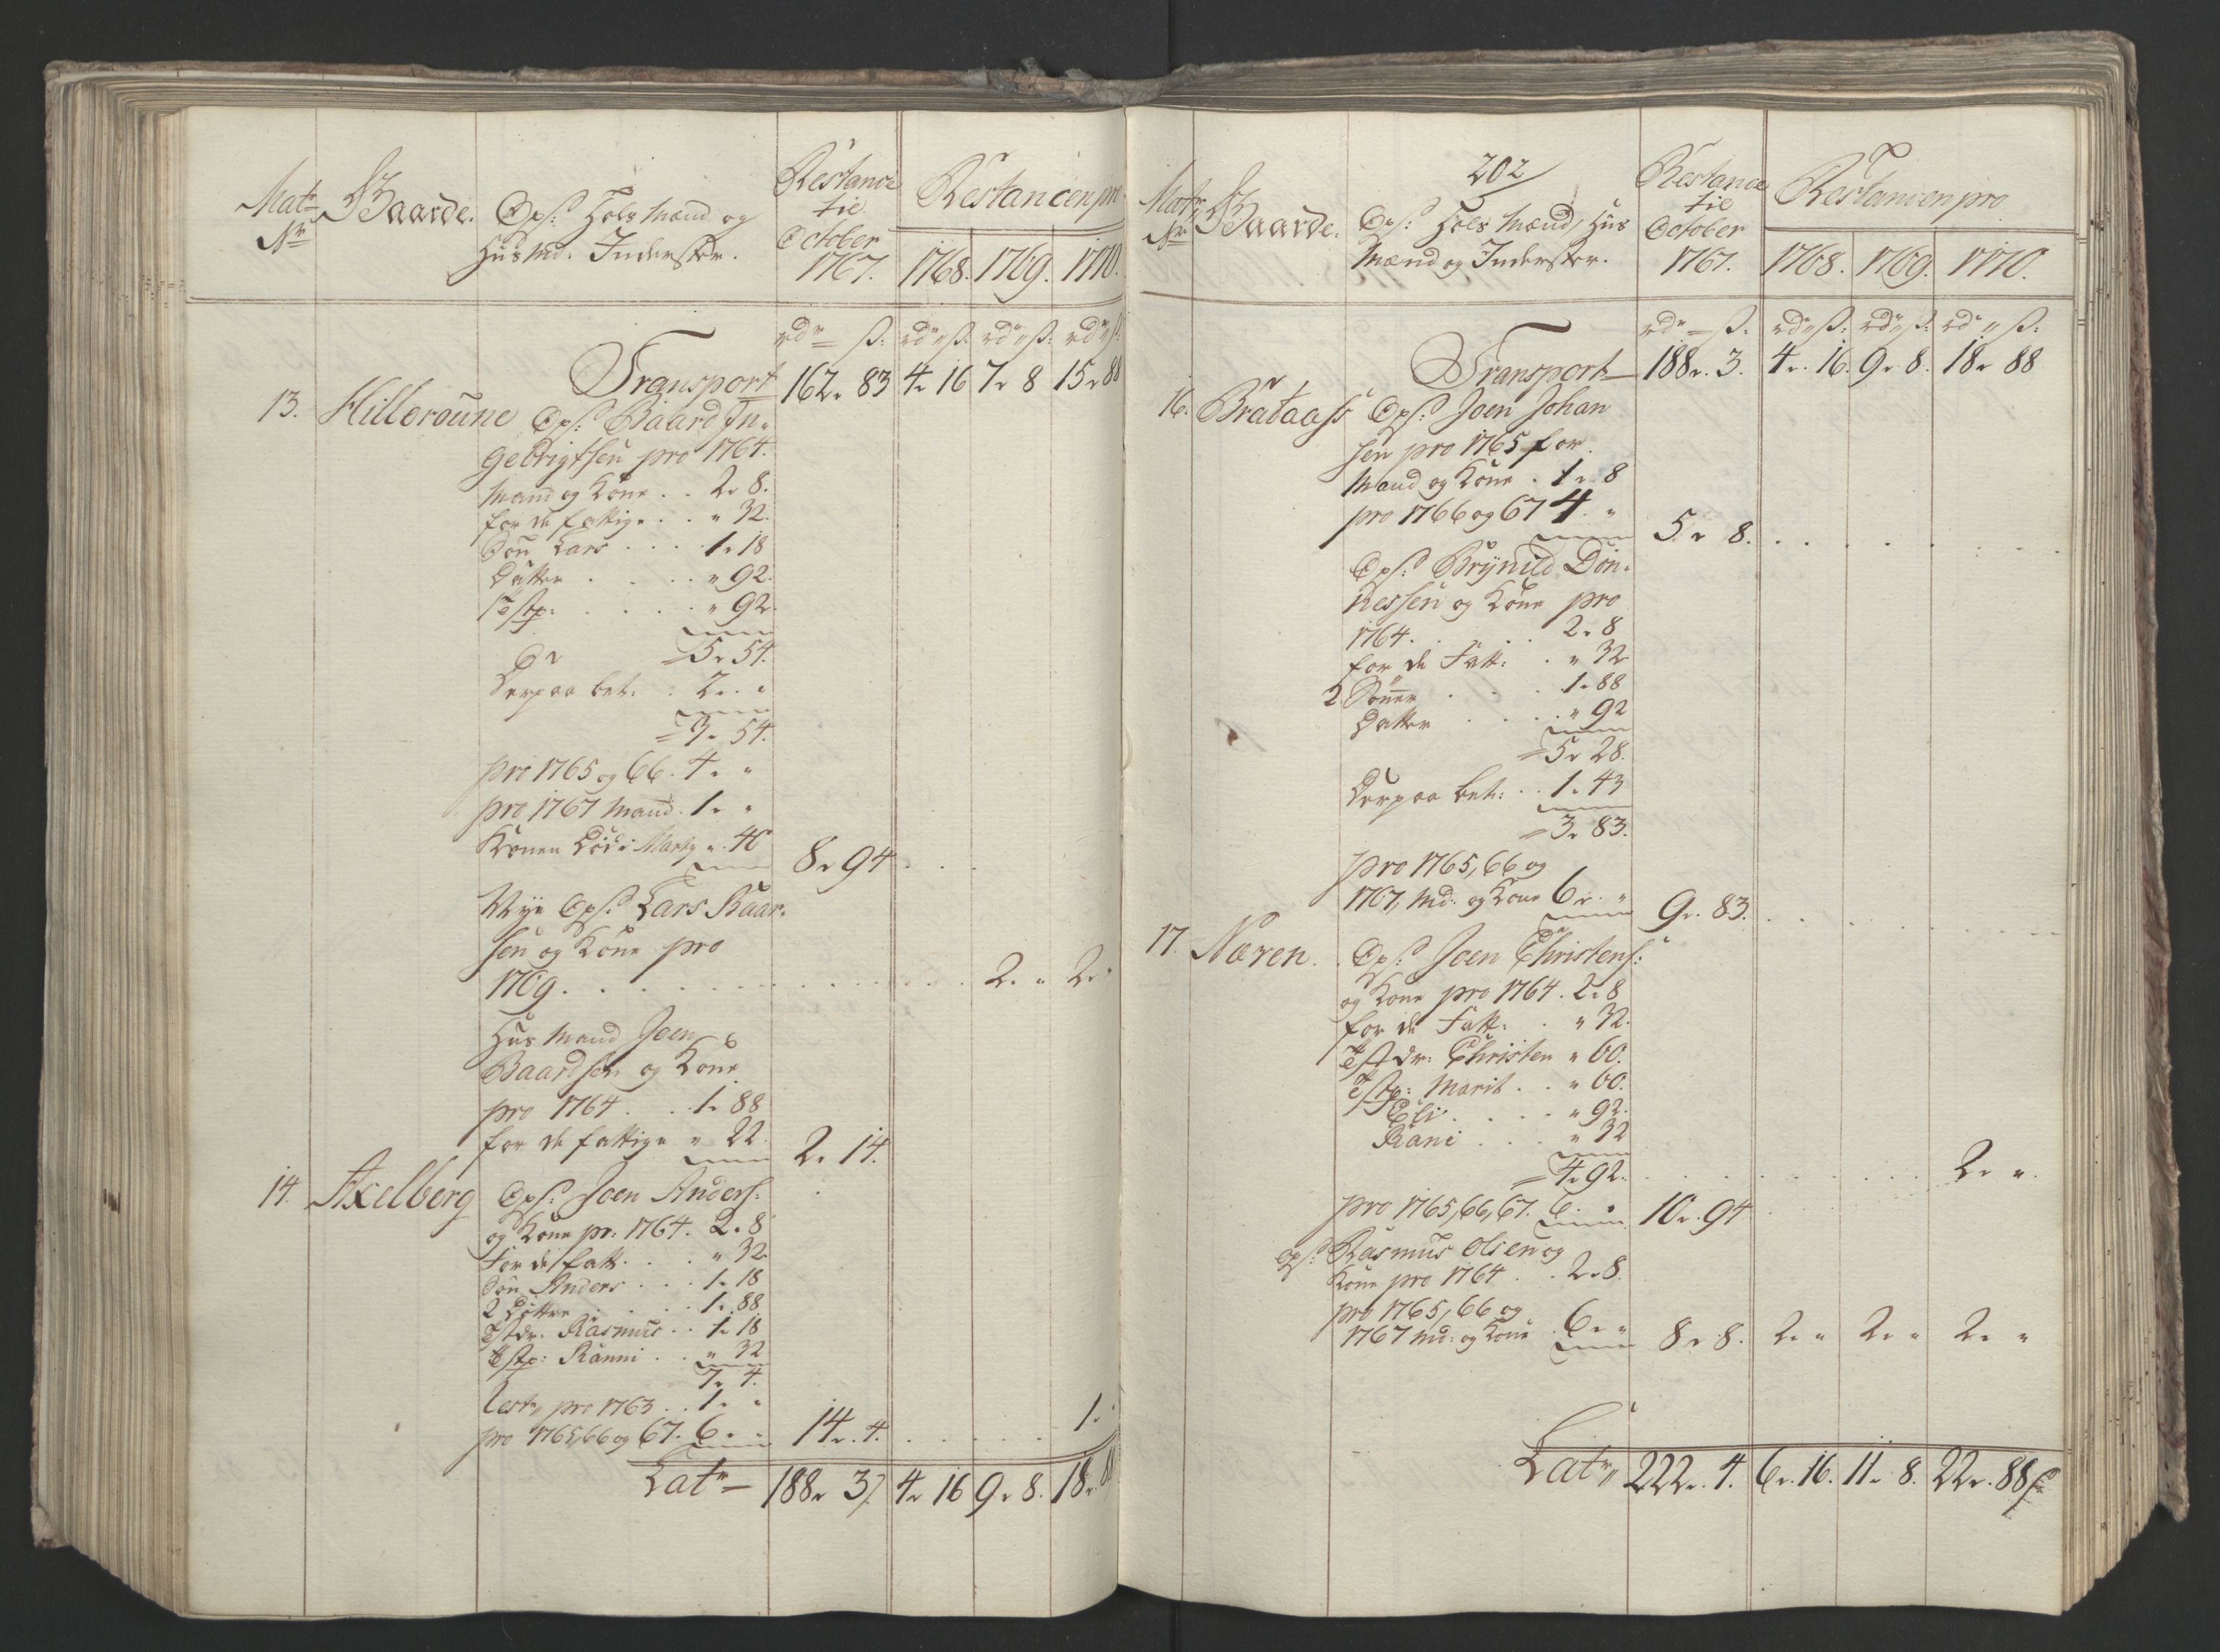 Matr Nr
Gaarde.
Ops: Hols Mænd og
Huusmd. Inderster.
Restance
til
October
1767.
Restancen pro
1768. 1769. 1770.
rdr ß: rdr ß: rdr ß: rdr ß:
Transport 162 " 83 4 " 16 7 " 8 15 " 88
13. Hilleroune Ops: Baard In-
gebrigtsen pro 1764.
Mand og Kone . . 2 " 8.
for de fattige . . " 32.
Søn Lars . . . 1 " 18
Datter . . . . " 92.
Tstp: . . . . " 92.
Er 5 " 54.
Derpaa bet: . 2 " "
3 " 54.
pro 1765 og 66. 4 " "
pro 1767 Mand. 1 " "
Konen Død i " 40 8 " 94
Nye Ops: Lars Baar-
sen og Kone pro
1769. . . . . 2 " " 2 "
Huusmand Joen
Baardsen og Kone
pro 1764 . . 1 " 88
for de fattige " 22. 2 " 14.
14. Axelberg Ops: Joen Anders:
og Kone pr: 1764. 2 " 8
For de fatt. . . " 32.
Søn Anders . . . 1 " 18
2 Døttre . . . 1 " 88
Tstdr. Rasmus . . 1 " 18
Tstp: Ranni . . " 32
7 " 4.
Rest pro 1763 . . 1 " "
pro 1765, 66 og 67. 6 " " 14 " 4. . . . 1 "
Latr 188 " 3 4 " 16 9 " 8. 18 " 88
202
Matr Nr
Gaarde.
Ops: Hols Mænd, Huus
Mænd og Inderster.
Restance
til
October
1767.
Restancen pro
1768. 1769. 1770.
rdr ß: rdr ß: rdr ß: rdr ß:
Transport 188 " 3. 4 " 16. 9 " 8. 18 " 88
16. Brataass Ops: Joen Johan
sen pro 1765 for
Mand og Kone . 1 " 8
pro 1766 og 67 4 "
5 " 8.
Ops: Brynild Døn-
nessen og Kone pro
1764. . . . 2 " 8
for de Fatt: . " 32
2 Sønner . . . 1 " 88
Datter . . . " 92
5 " 28.
Derpaa bet: . . 1 " 43
3 " 83.
pro 1765, 66 og
1767, Md: og Kone 6 " " 9 " 83.
17. Næren . Ops: Joen Christens:
og Kone pro 1764. 2 " 8
for de Fatt: . " 32.
Tstdr: Christen " 60.
Tstp: Marit . . " 60.
Eli . . . . " 92.
Rani . . . " 32
4 " 92. . . . 2 " "
pro 1765, 66, 67. 6 " 10 " 94
Ops: Rasmus Olsen og
Kone pro 1764 . . 2 " 8.
pro 1765, 66 og
1767 Md: og Kone . 6 " " 8 " 8. 2 " " 2 " " 2 " "
Latr 222 " 4. 6 " 16. 11 " 8. 22 " 88 ß